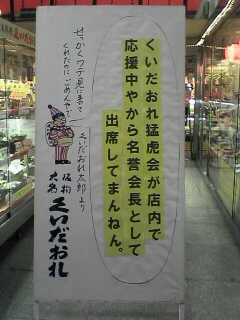 くいだおれ猛虎会が店内で
応援中やから名誉会長として
出席してまんねん。
せっかくワテ見に来て
くれたのにごめんやで
くいだおれ太郎より
大阪名物
くいだおれ